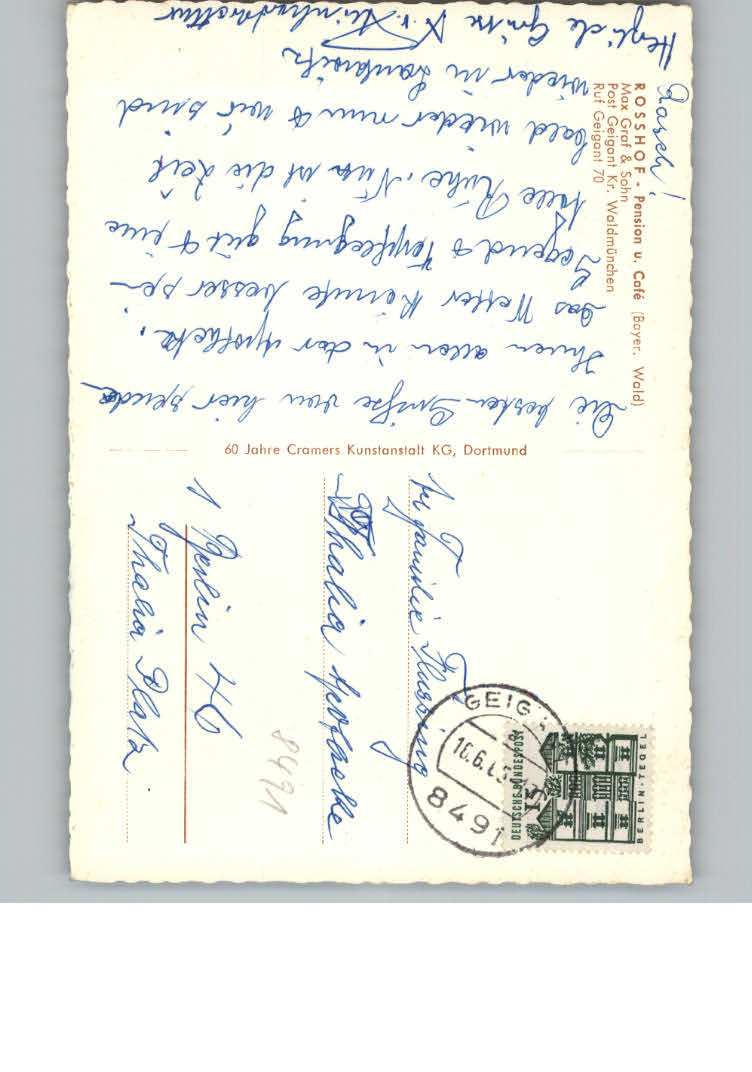 ROSSHOF - Pension u. Café (Bayer. Wald)
Max Graf & Sohn
Post Geigant Kr. Waldmünchen
Ruf Geigant 70
Die besten Grüße von hier sendet
Ihnen allen in der Apotheke.
Das Wetter könnte besser sein
Gegend & Verpflegung gut & eine
tolle Ruhe. Nun ist die Zeit
bald wieder rum & wir sind
wieder in Lankwitz
Herzliche Grüße
Rasch!
60 Jahre Cramers Kunstanstalt KG, Dortmund
Familie
Thalia Apotheke
1 Berlin 46
Thalia Platz
8491
GEIGA
16.6.6
8491
DEUTSCHE BUNDESPOST
15
BERLIN-TEGEL